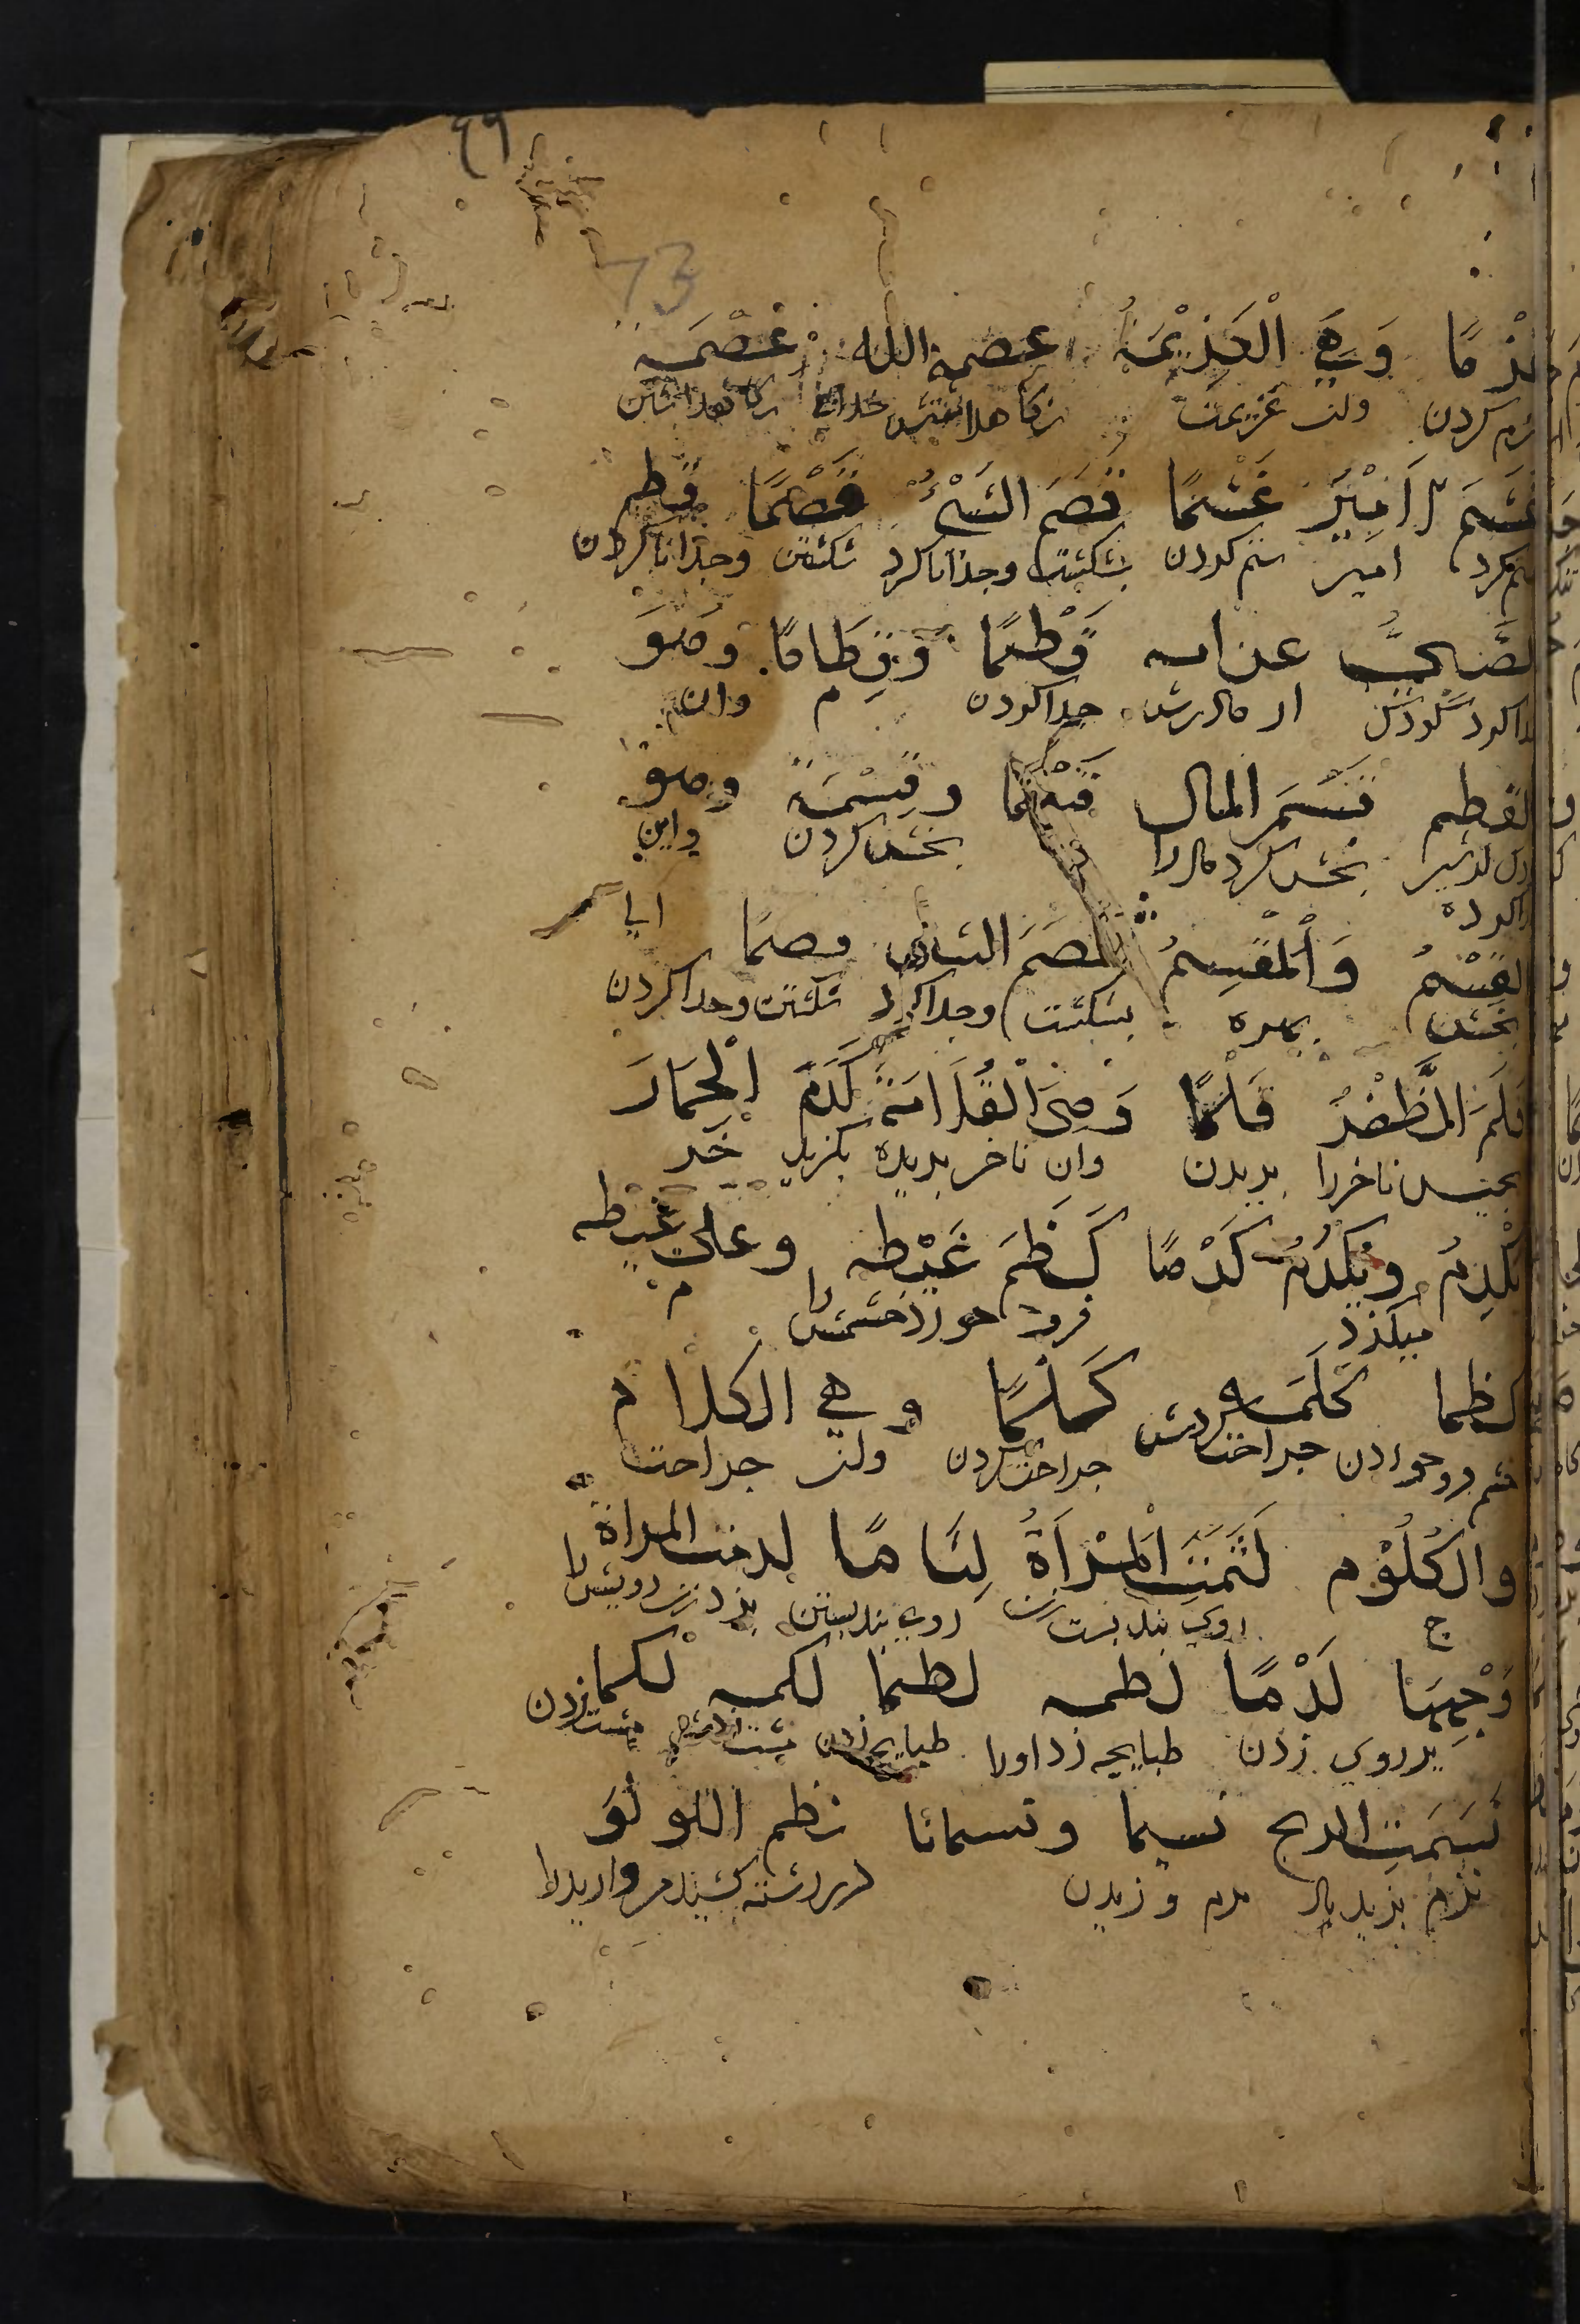 ٤٩
73
عَزْمًا وَهِيَ الْعَزِيْمَةُ عصمه الله عِصْمَة
عزم کردن وان عزیمت نکاه داشتش خدای نکاه داشتن
غَشَمَ الْاَمِيْرُ غَشْمًا فَصَمَ الشَيْءَ فَصْمًا فطم
ستم کرد امیر ستم کردن بشکست وجذا ناکرد شکستن وجذا ناکردن
الصَّبِيَّ عن امه فَطْمًا وَفِطَامًا وَهُوَ
از مادرش جدا کردن م وان
الفطيم قَسَمَ المال قَسْمًا وقِسْمَة وهو
از شیر بخش کرد مال را بخش کردن واین
القِسْمُ وَالْمَقْسِمُ قصم الشيء قصما
بخش بهره بشکست وجدا کرد شکستن وجدا کردن
قَلَمَ الظُّفْرَ قَلْمًا وَهِيَ الْقُلَامَة كَدَمَ الْحِمَارُ
ناخن را بریدن وان ناخن بریده بکزید خر
يَكْدِمُ وَيَكْدُمُ كَدْمًا كَظَمَ غَيْظه وعلى غيظه
میکزد فرو خورد خشمش را م
كظما كَلَمَه كَلْمًا وهي الكلام
خشم فرو خوردن جراحت کردش جراحت کردن وان جراحت
والكُلُوْم لَثَمَتِ الْمَرْاَةُ لِثَامًا لدمت المراة
ج روی بند بست زن روی بند بستن بزد زن رویش را
وَجْهَهَا لَدْمًا لطمه لطما لكمه لكما
بر روی زدن طبایجه زد اورا طبایجه زدن مشت زدش مشت زدن
نَسَمَتِ الريح نسيما ونسمانا نظم اللؤلؤ
نرم بزید باد نرم وزیدن در رشته کشید مروارید را